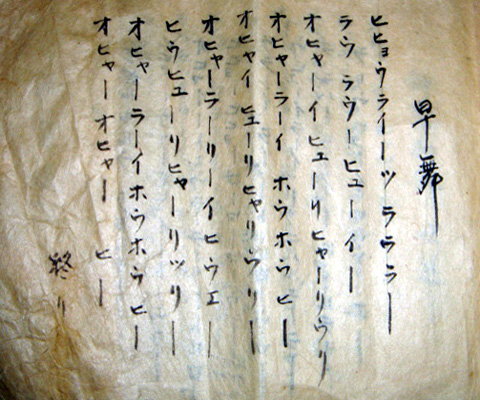 早舞
ヒヒョウライーツラララー
ラウ ラウーヒューイー
オヒャーイヒューリヒャーリウリ
オヒャーラーイ ホウホウヒー
オヒャイヒューリヒャリウリー
オヒャーラーリーイヒウエー
ヒウヒューリヒャーリッリー
オヒャーラーイホウホウヒー
オヒャーオヒャー ヒー
終り